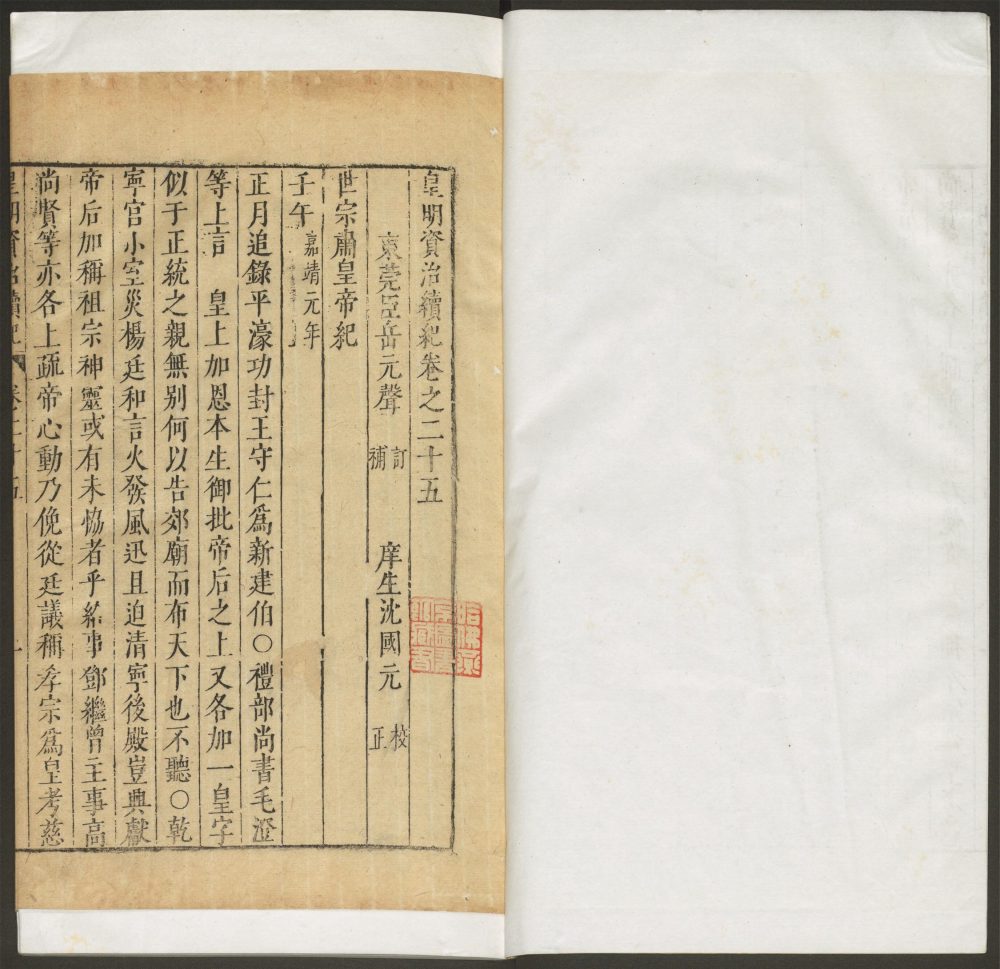 皇明資治續紀卷之二十五
東莞臣岳元聲 訂補 庠生沈國元 校正
世宗肅皇帝紀
壬午嘉靖元年
正月追錄平濠功封王守仁爲新建伯〇禮部尚書毛澄
等上言 皇上加恩本生御批帝后之上又各加一皇字
似于正統之親無别何以告郊廟而布天下也不聽〇乾
寧官小室災楊廷和言火發風迅且迫清寧後殿豈興獻
帝后加稱祖宗神靈或有未恊者乎給事鄧繼曾主事高
尚賢等亦各上疏帝心動乃俛從廷議稱孝宗爲皇考慈
皇明資治續紀 卷二十五 一